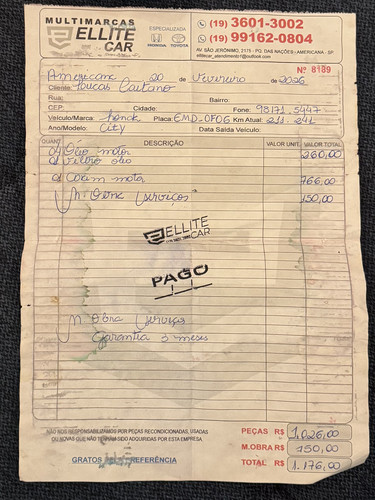 MULTIMARCAS
ELLITE
CAR
ESPECIALIZADA
HONDA TOYOTA
(19) 3601-3002
(19) 99162-0804
AV. SÃO JERÔNIMO, 2175 - PQ. DAS NAÇÕES - AMERICANA - SP
ellitecar_atendimento1@outlook.com
Nº 8189
Americana 20 de Fevereiro de 2026
Cliente: Lucas Caetano
Rua: Bairro:
CEP: Cidade: Fone: 98171.5447
Veículo/Marca: Placa: EMD-0F06 Km Atual: 211.241
Ano/Modelo: City Data Saída Veículo:
QUANT. DESCRIÇÃO VALOR UNIT. VALOR TOTAL
Óleo motor 260,00
Filtro óleo
Coxim motor 766,00
M. Obra Serviços 150,00
ELLITE
CAR
PAGO
M. Obra Serviços
Garantia 3 meses
NÃO NOS RESPONSABILIZAMOS POR PEÇAS RECONDICIONADAS, USADAS
OU NOVAS QUE NÃO FORAM SIDO ADQUIRIDAS POR ESTA EMPRESA.
GRATOS PREFERÊNCIA
PEÇAS R$ 1.026,00
M.OBRA R$ 150,00
TOTAL R$ 1.176,00